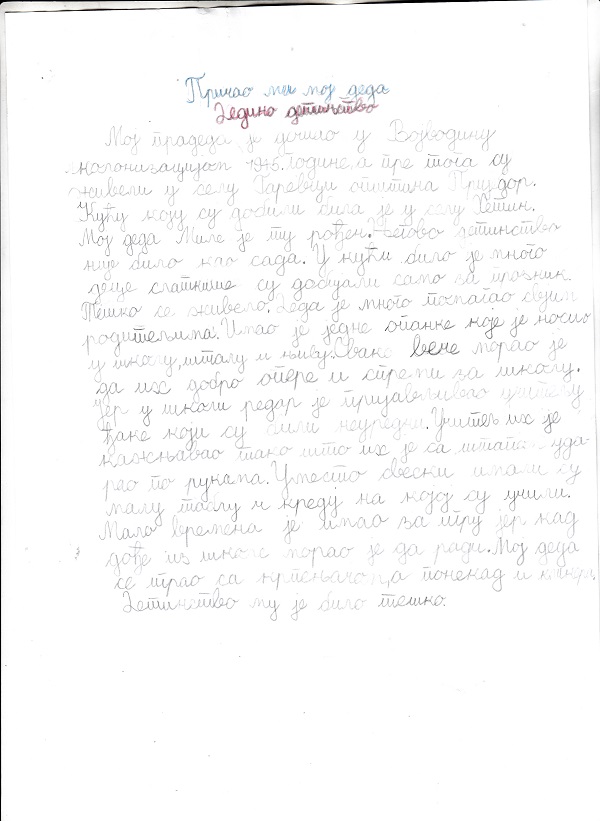 Причао ми мој деда
Дедино детињство
Мој прадеда је дошло у Војводину
колонизацијом 1945. године, а пре тога су
живели у селу Гаревци општина Приједор.
Кућу коју су добили била је у селу Хетин.
Мој деда Миле је ту рођен. Његово детињство
није било као сада. У кући било је много
деце слаткише су добијали само за празник.
Тешко се живело. Деда је много помагао својим
родитељима. Имао је једне опанке које је носио
у школу, шталу и њиву. Свако вече морао је
да их добро опере и спреми за школу.
Јер у школи редар је пријављивао учитељу
ђаке који су били неуредни. Учитељ их је
кажњавао тако што их је са штапом уда
рао по рукама. Уместо свески имали су
малу таблу и креду на којој су учили.
Мало времена је имао за игру јер кад
дође из школе морао је да ради. Мој деда
се играо са крпењачом, а понекад и кликера.
Детинство му је било тешко.